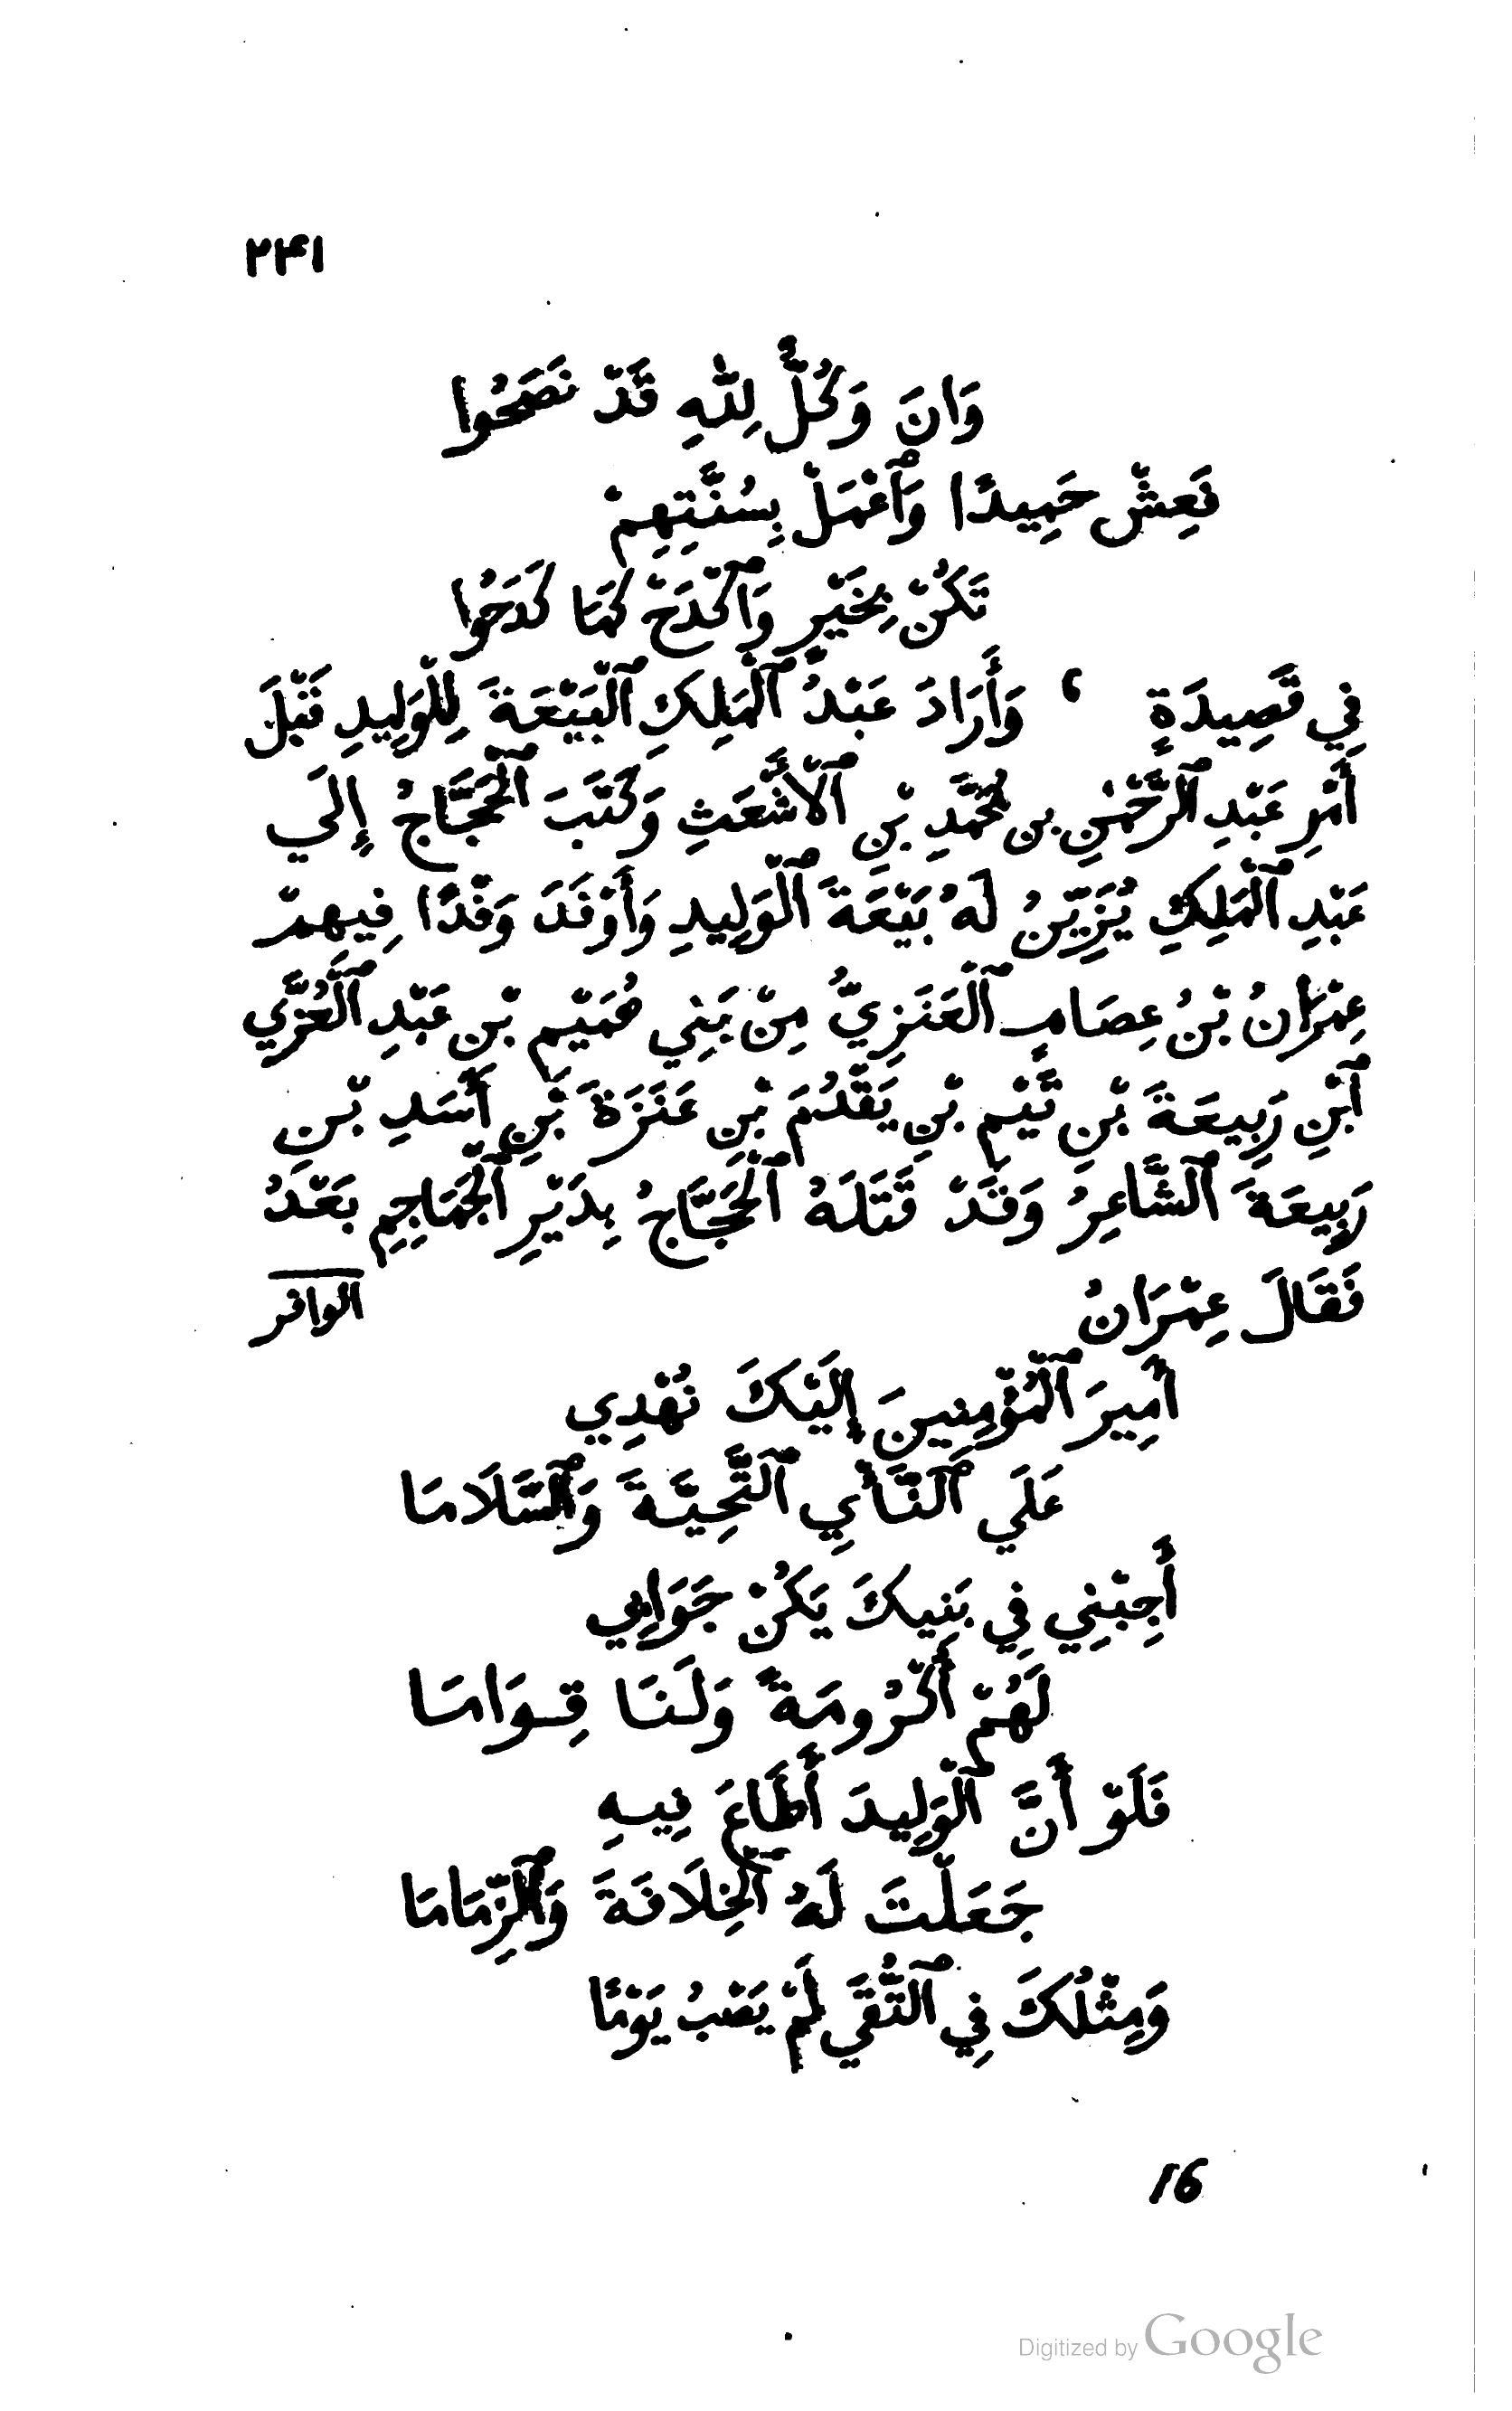 ٢٤١
وَانَ وَكُلٌّ لِلّٰهِ قَدْ نَصَحُوا
فَعِشْ حَمِيدًا وَٱعْمَلْ بِسُنَّتِهِمْ
تَكُنْ بِخَيْرٍ وَٱكْدَحْ كَمَا كَدَحُوا
فِي قَصِيدَةٍ ، وَأَرَادَ عَبْدُ ٱلْمَلِكِ ٱلْبَيْعَةَ لِلْوَلِيدِ قَبْلَ
أَمْرِ عَبْدِ ٱلرَّحْمٰنِ بن مُحَمَّدِ بْنِ ٱلْأَشْعَثِ وَكَتَبَ ٱلْحَجَّاجُ إِلَي
عَبْدِ ٱلْمَلِكِ يُزَيِّنُ لَهُ بَيْعَةَ ٱلْوَلِيدِ وَأَوْفَدَ وَفْدًا فِيهِمْ
عِمْرَانُ بْنُ عِصَامٍ ٱلْعَنَزِيُّ مِنْ بَنِي هُمَيْمِ بْنِ عَبْدِ ٱلْعُزَّي
ٱبْنِ رَبِيعَةَ بْنِ تَيْمِ بْنِ يَقْدُمَ بْنِ عَنَزَةَ بْنِ أَسَدِ بْنِ
رَبِيعَةَ ٱلشَّاعِرُ وَقَدْ قَتَلَهُ ٱلْحَجَّاجُ بِدَيْرِ ٱلْجَمَاجِمِ بَعْدُ
فَقَالَ عِمْرَانُ الوافر
أَمِيرَ ٱلْمُؤْمِنِينَ إِلَيْكَ نُهْدِي
عَلَي ٱلنَّأْيِ ٱلتَّحِيَّةَ وَٱلسَّلَامَا
أَجِبْنِي فِي بَنِيكَ يَكُنْ جَوَابِي
لَهُمْ أُكْرُومَةً وَلَنَا قِوَامَا
فَلَوْ أَنَّ ٱلْوَلِيدَ أُطَاعُ فِيهِ
جَعَلْتَ لَهُ ٱلْخِلَافَةَ وَٱلزِّمَامَا
وَمِثْلُكَ فِي ٱلتُّقَي لَمْ يَصْبُ يَوْمًا
16
Digitized by Google